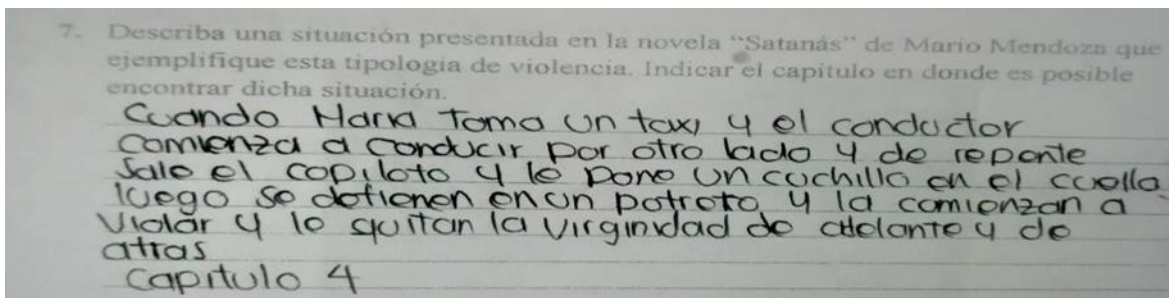 7. Describa una situación presentada en la novela “Satanás” de Mario Mendoza que
ejemplifique esta tipología de violencia. Indicar el capítulo en donde es posible
encontrar dicha situación.
Cuando Maria Toma un taxi y el conductor
comienza a conducir por otro lado y de repente
Sale el copiloto y le pone un cuchillo en el cuello
luego se detienen en un potrero y la comienzan a
Violar y le quitan la virginidad de adelante y de
atras
Capitulo 4